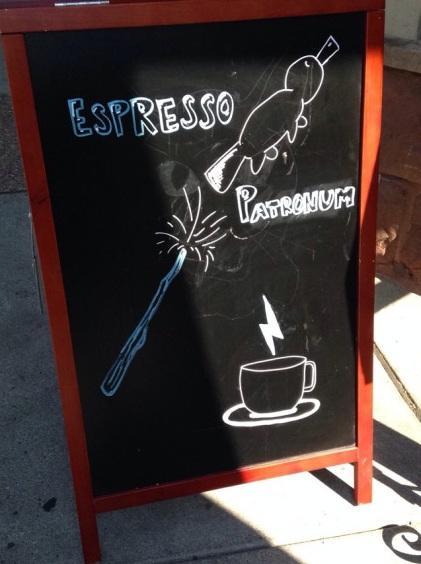 ESPRESSO
PATRONUM